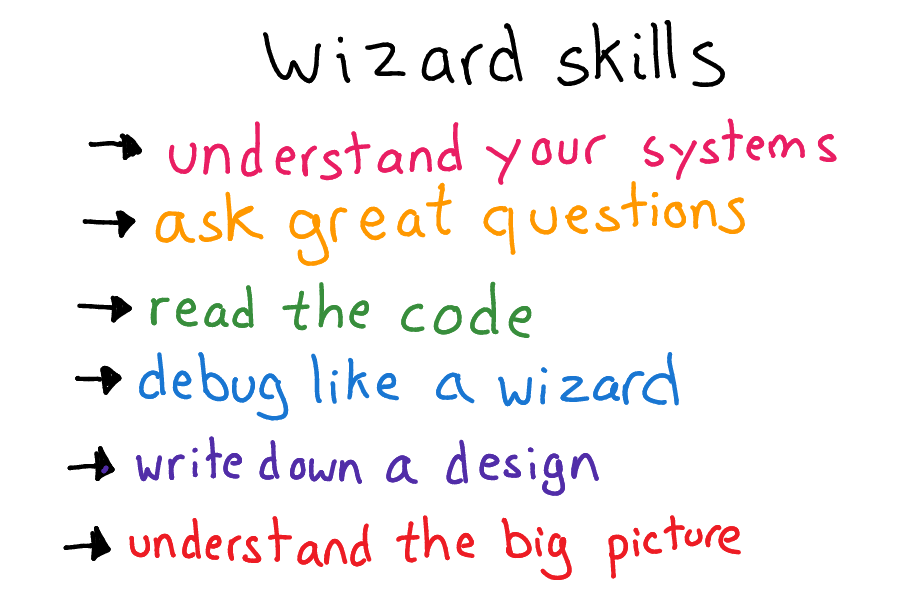 Wizard skills
→ understand your systems
→ ask great questions
→ read the code
→ debug like a wizard
→ write down a design
→ understand the big picture